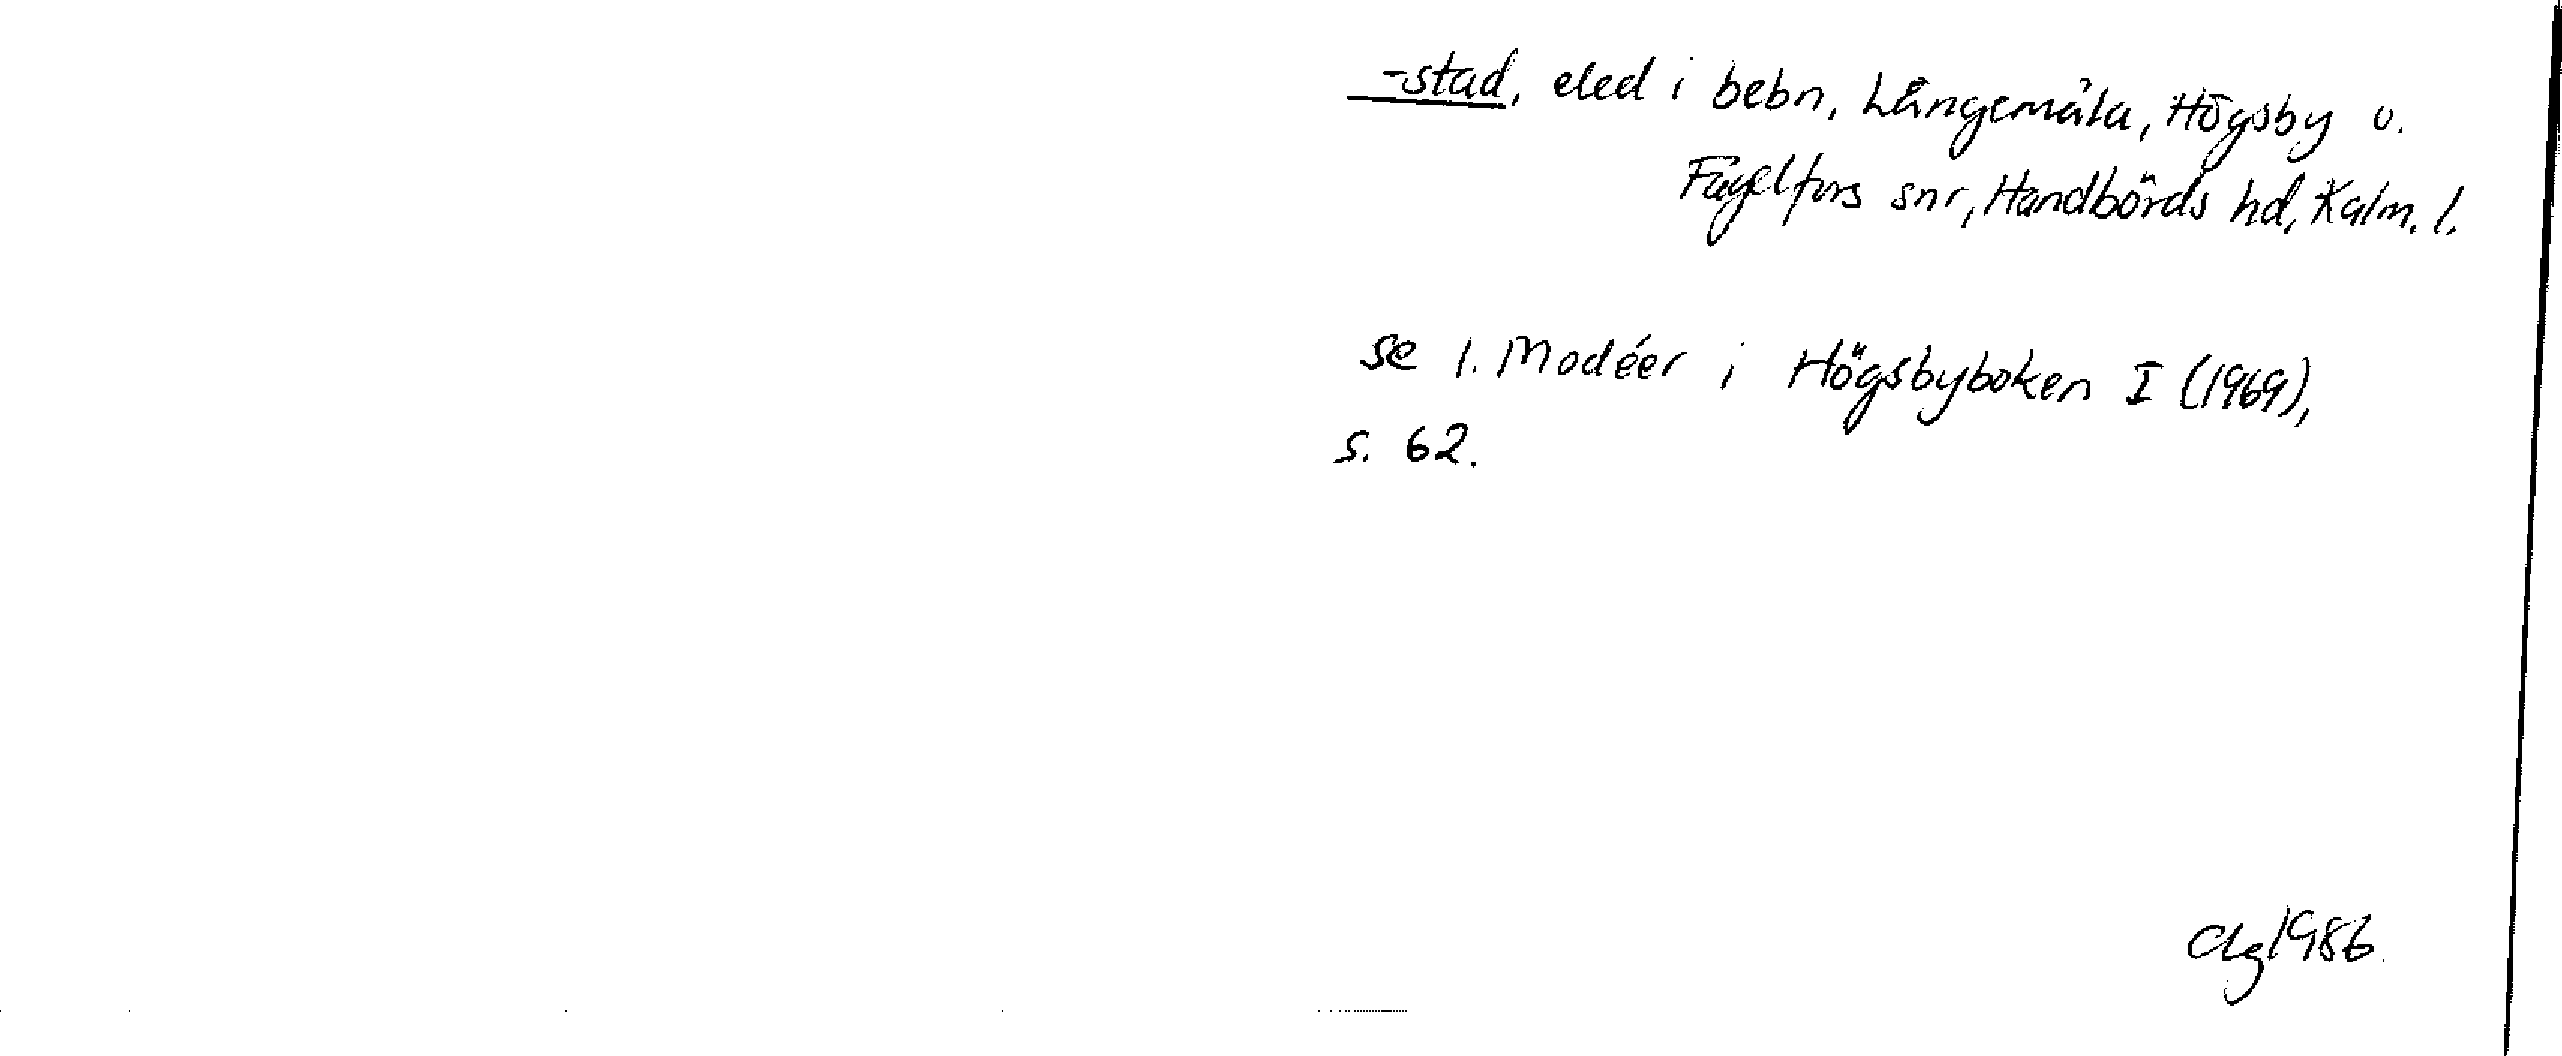 -stad, eled i bebn, Långemåla, Högsby o.
Fågelfors snr, Handbörds hd, Kalm. l.
se I. Modéer i Högsbyboken I (1969),
s. 62.
1986.